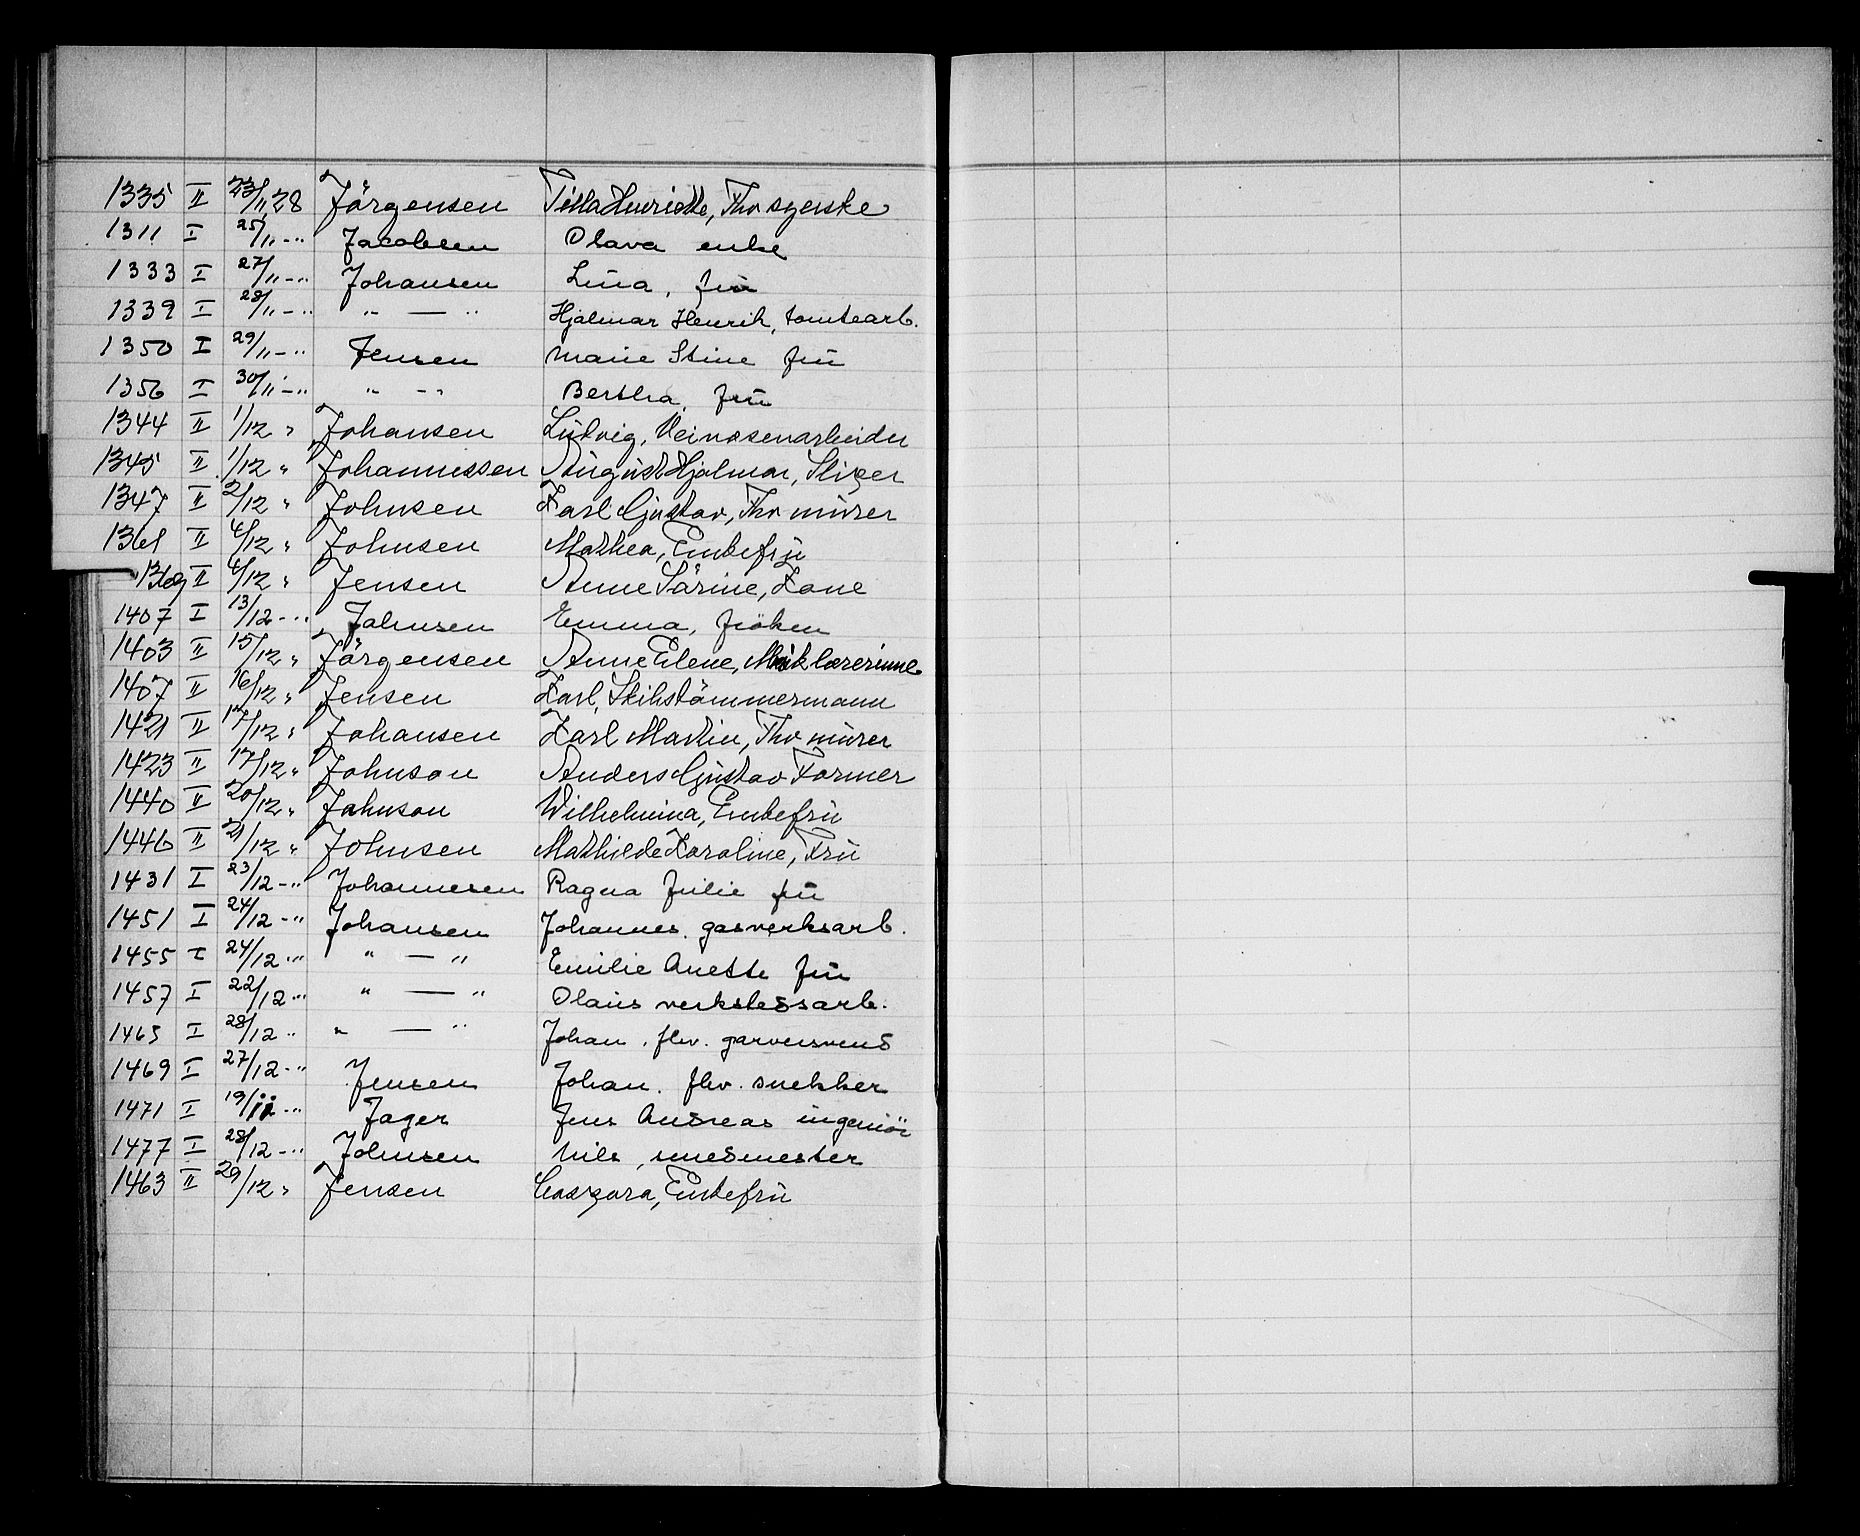 1335 II 23/11 28 Jörgensen Tilla Henriette, Fhv syerske
1311 I 25/11 - " Jacobsen Olava enke
1333 I 27/11 - " Johansen Lina, fru
1339 I 28/11 - " " — " Hjalmar Henrik, tomtearb.
1350 I 29/11 - " Jensen Marie Stine fru
1356 I 30/11 - " " - " Bertha, fru
1344 II 1/12 " Johansen Ludvig, Veivesenarbeider
1345 II 1/12 " Johannessen August Hjalmar, Sliper
1347 II 2/12 " Johnsen Karl Gustav, Fhv murer
1361 II 4/12 " Johnsen Mathea, Enkefru
1369 II 4/12 " Jensen Anne Sörine, Kone
1407 I 13/12 - " Johnsen Emma, fröken
1403 II 15/12 " Jörgensen Anne Elene, Musiklærerinne
1407 II 16/12 " Jensen Karl, Skibstömmermann
1421 II 17/12 " Johansen Karl Martin, Fhv murer
1423 II 17/12 " Johnson Anders Gustav Formner
1440 II 20/12 " Johnson Wilhelmina, Enkefru
1446 II 21/12 " Johnsen Mathilde Karoline, Fru
1431 I 23/12 - " Johannesen Ragna Julie fru
1451 I 24/12 - " Johansen Johannes. gasverksarb.
1455 I 24/12 - " " — " Emilie Anette fru
1457 I 22/12 - " " — " Olaus verkstedsarb.
1465 I 28/12 " " — " Johan. fhv. garversvend
1469 I 27/12 - " Jensen Johan. fhv. snekker
1471 I 19/11 - " Jager Jens Andreas ingeniör
1477 I 28/12 - " Johnsen Nils,
1463 II 29/12 " Jensen Caspara, Enkefru